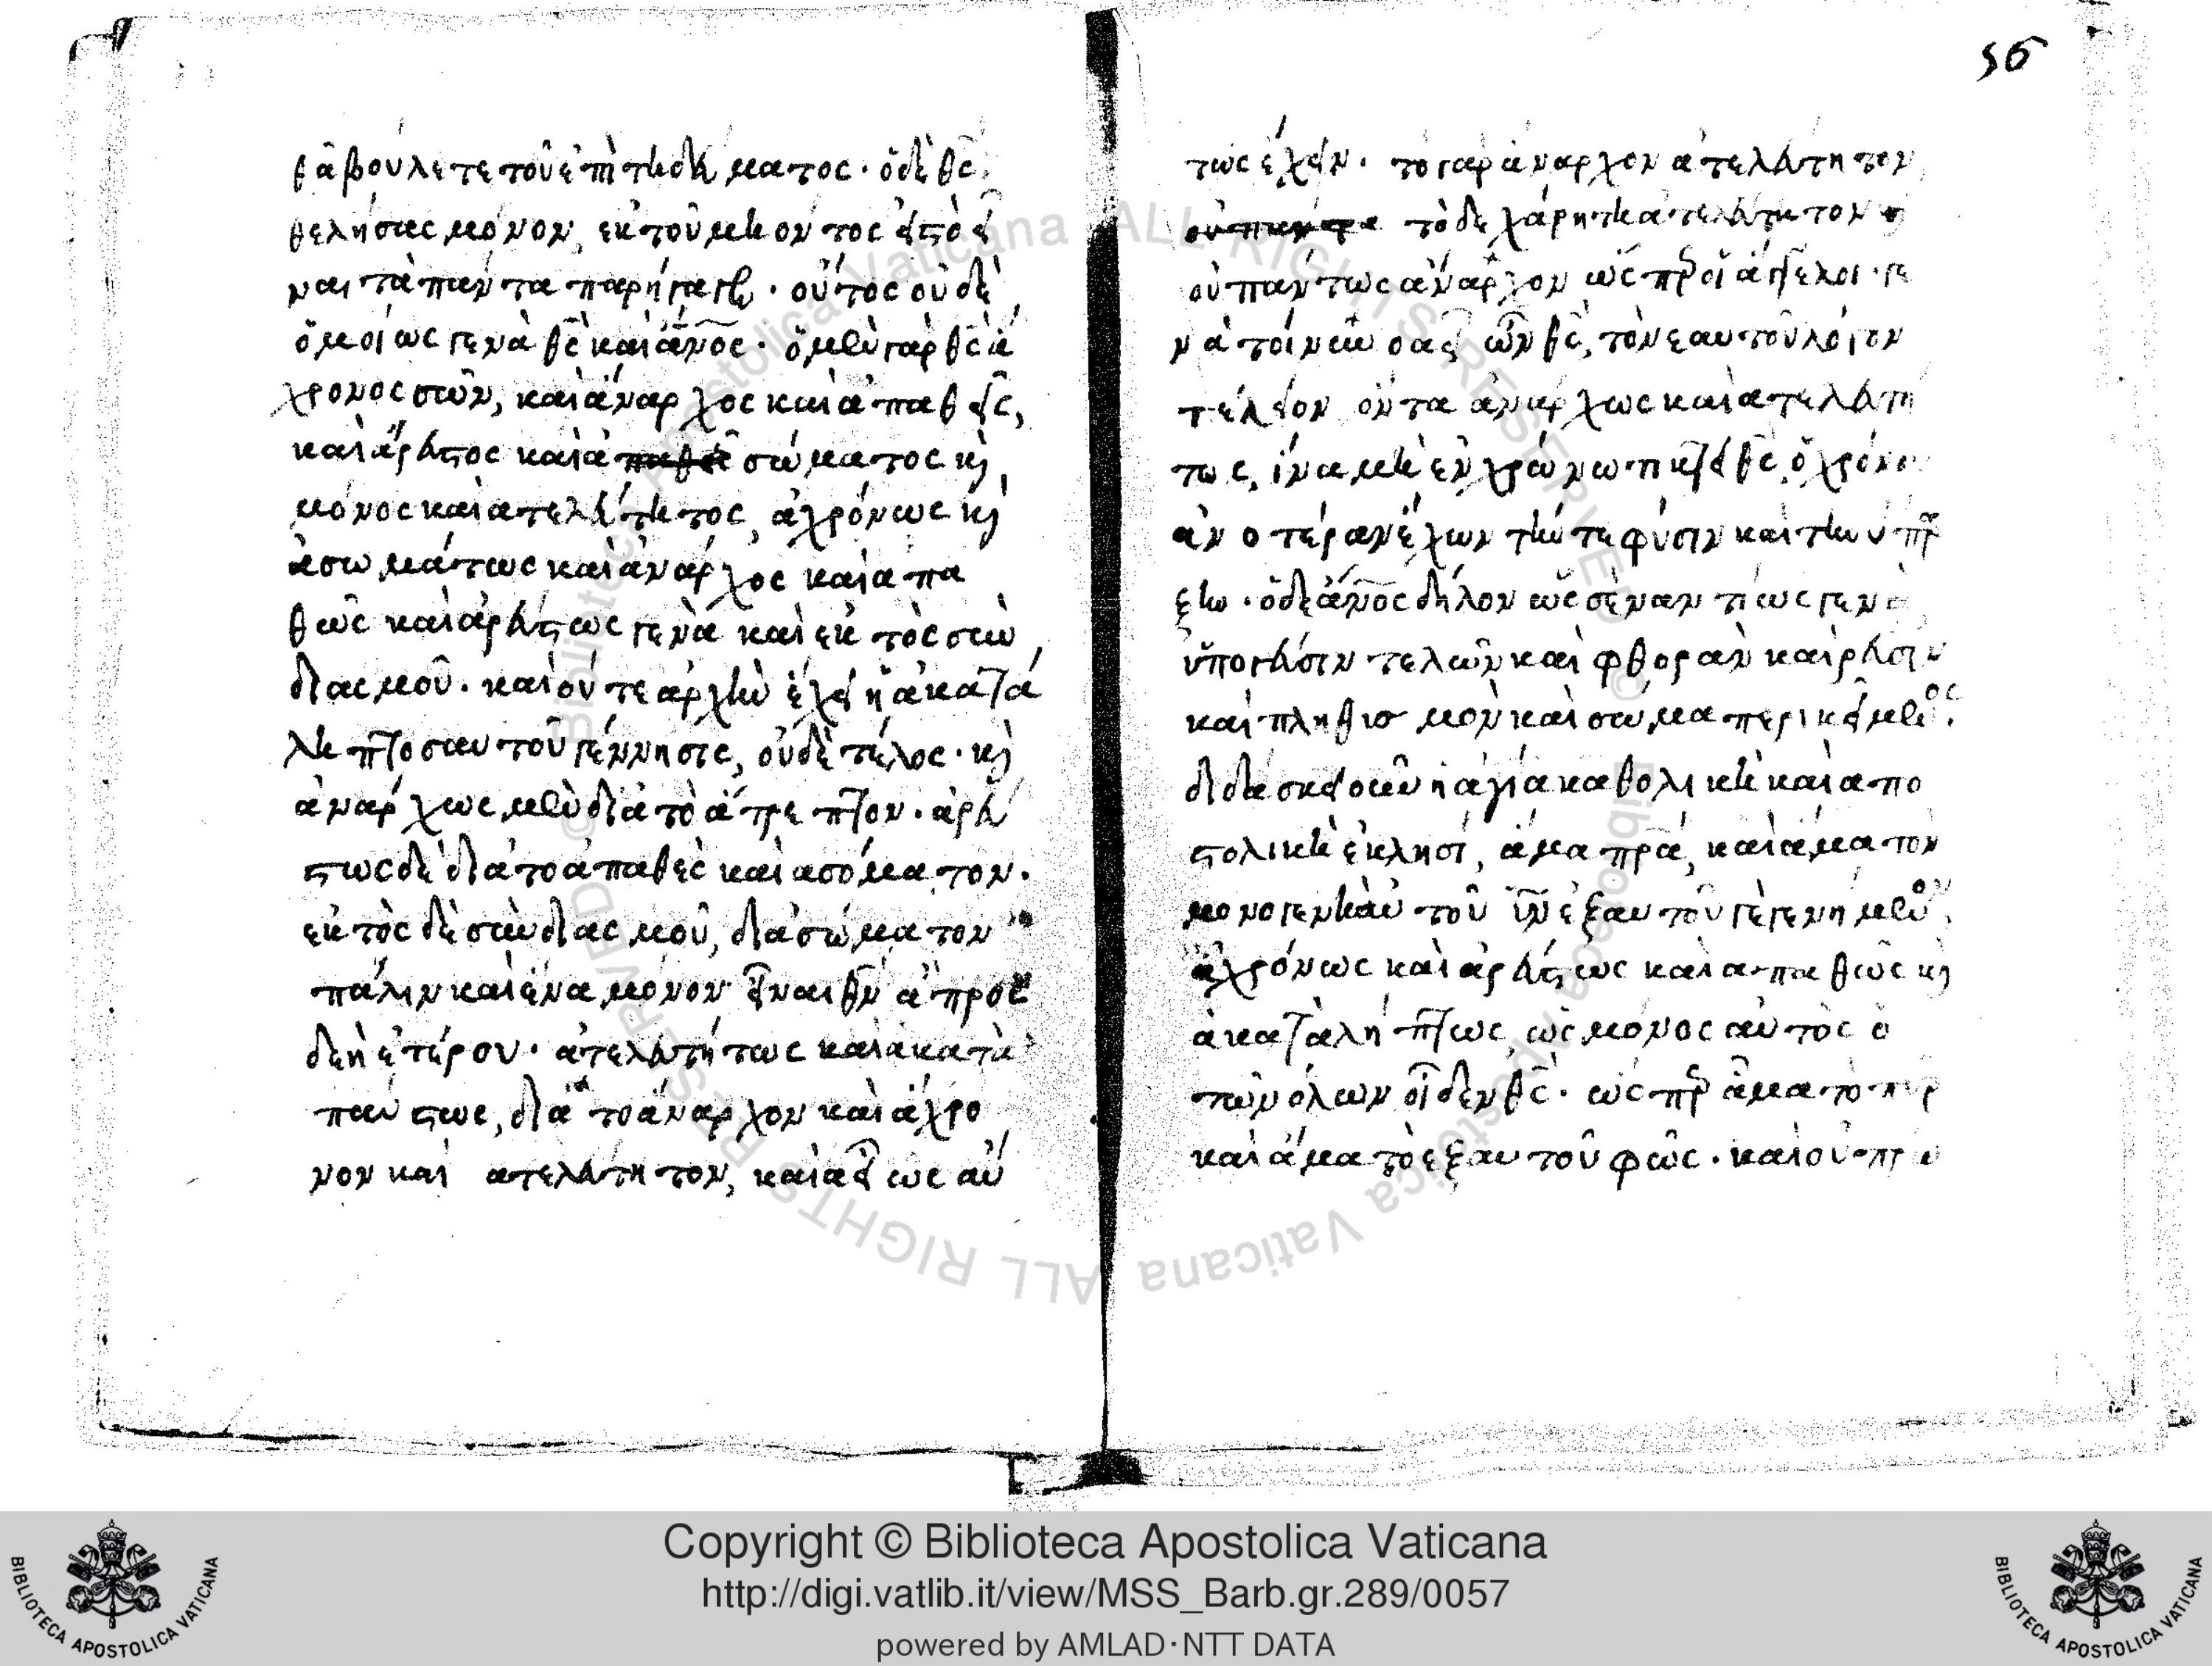 56
θᾶ βουλετε τοῦ ἐπιτηδεύματος · ὁ δὲ θς
θελήσας μόνον, ἐκ τοῦ μη οντος εἰς τὸ εἶ
ναι τὰ πάντα παρήγαγεν · οὕτος οὐδὲ
ὁμοίως γενὰ θς καὶ ἄνος · ὁ μὲν γὰρ θς ἀ
χρονος ὢν, καὶ ἄναρχος καὶ ἀπαθεῖς,
καὶ ἄρευστος καὶ ἀσώματος κ
μόνος καὶ ατελεύτητος, ἀχρόνως κ
ἀσωμάτως καὶ ἀνάρχος καὶ απα
θῶς καὶ ἀρεύστως γενὰ καὶ εκ τὸς συν
διασμοῦ · καὶ όν τε αρχὴν ἔχει ἡ ἀκατά
ληπτος αυτοῦ γέννησις, οὐδὲ τέλος · κ
ἀνάρχως μὲν διὰ τὸ άτρεπτον · ἀρεύ
στως δὲ διὰ το ἀπαθὲς καὶ ασόματον ·
εκ τὸς δὲ συνδιασμοῦ, διὰ σώματον
πάλιν καὶ ἕνα μόνον εἶναι θν ἀπροσ
δεὴ ἑτέρου · ἀτελευτήτως καὶ ἀκατὰ
παύστως, διὰ το ἄναρχον καὶ ἄχρο
νον καὶ ατελεύτητον, καὶ αεὶ ως αὐ
τως έχειν · το γαρ άναρχον ατελεύτητον
τὸ δε χάρητη ατελεύτητον
οὐ πάντως ἀναρχον ὡς περ οἱ ἄγγελοι · γε
νὰ τοίνυν ὁ αεὶ ὢν θς, τὸν εαυτοῦ λόγον
τέλειον ὄντα ἀνάρχως καὶ ατελευτή
τως, ίνα μὴ ἐν χρώνω τικτει θς, ὁ χρόνου
ἀνοτέραν έχων τήν τε φύσιν καὶ την ύπαρ
ξιν · ὁ δε ἄνος δηλον ὡς εναντίως γενὰ
ὑπο γένεσιν τελῶν καὶ φθορὰν καὶ ρεύσιν
καὶ πληθισμὸν καὶ σωμα περικείμενος.
διδάσκει οὖν ἡ αγία καθολικὴ καὶ απο
στολικὴ ἐκλησί, άμα πρα, καὶ ἅμα τον
μονογενῆ αυτοῦ υν εξ αυτοῦ γεγενημένον
ἀχρόνως καὶ ἀρεύστως καὶ απαθῶς κ
ἀκαταλήπτως, ὡς μόνος αὐτὸς ὁ
τῶν όλων οἶδεν θς · ὡς περ ἅμα το πυρ
καὶ άμα τὸ εξ αυτοῦ φῶς · καὶ οὐ πρω
Copyright © Biblioteca Apostolica Vaticana
http://digi.vatlib.it/view/MSS_Barb.gr.289/0057
powered by AMLAD·NTT DATA
BIBLIOTECA APOSTOLICA VATICANA
BIBLIOTECA APOSTOLICA VATICANA